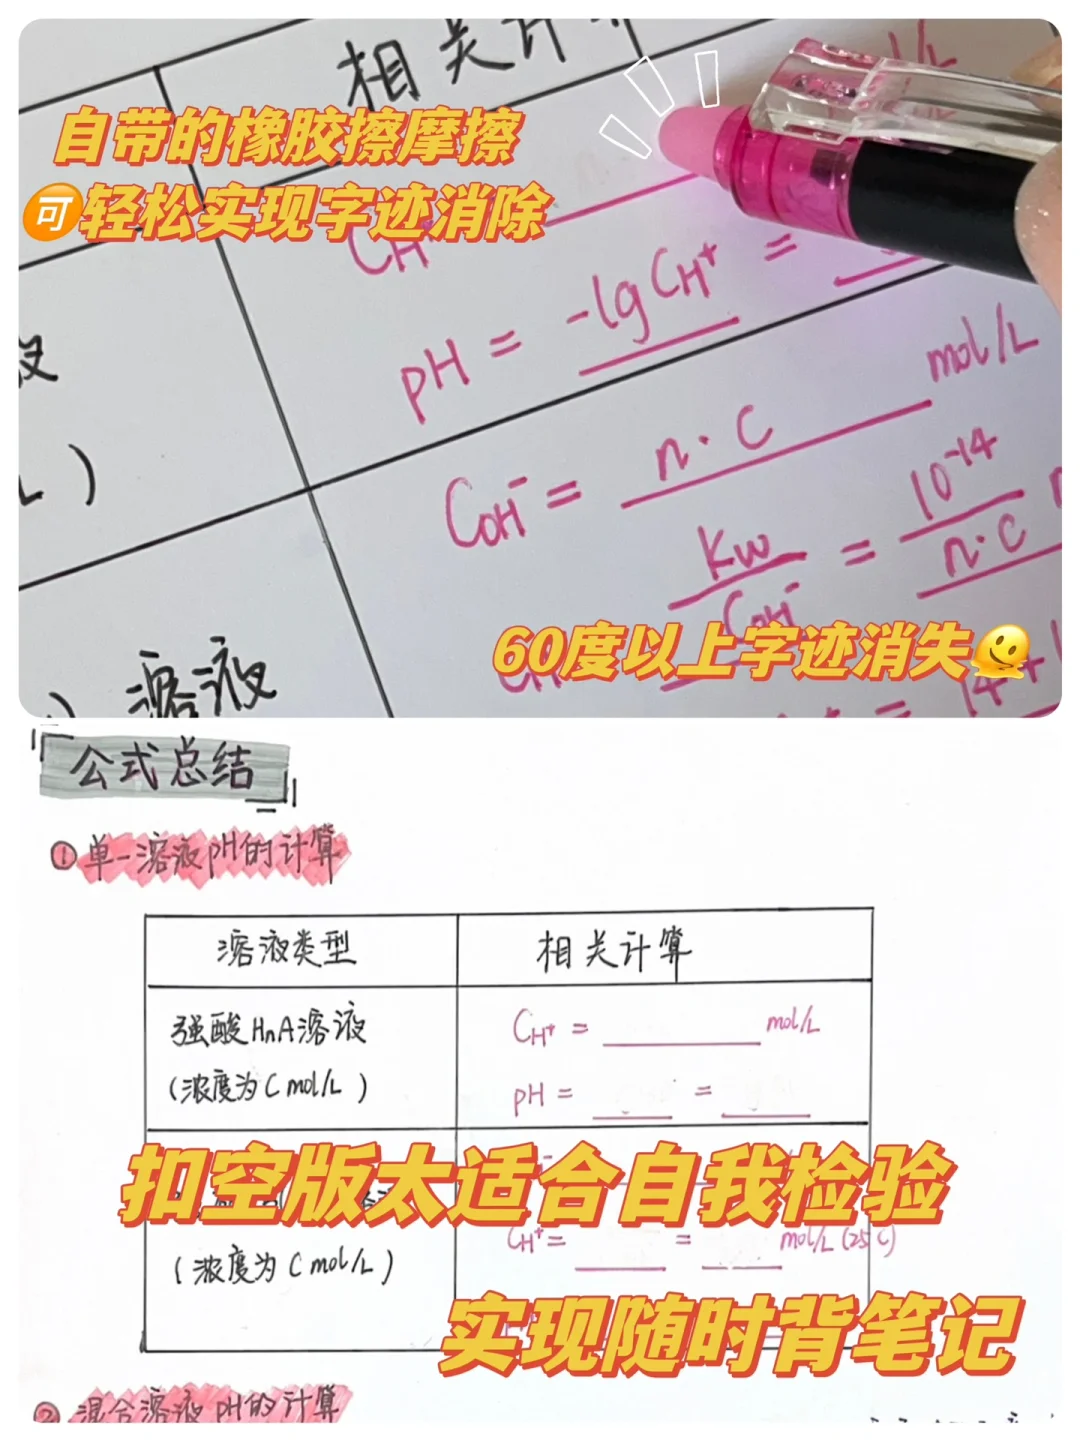 相关计算
自带的橡胶擦摩擦
可轻松实现字迹消除
CH⁺
pH = -lg CH⁺ =
mol/L
COH⁻ = n·C
Kw / COH⁻ = 10⁻¹⁴ / n·C
L)
60度以上字迹消失🫠
溶液
公式总结
①单一溶液pH的计算
溶液类型 相关计算
强酸HnA溶液 CH⁺ = ______ mol/L
(浓度为C mol/L) pH = ____ = ____
扣空版太适合自我检验
CH⁺ = ____ = ____ mol/L (25℃)
(浓度为C mol/L)
实现随时背笔记
②混合溶液pH的计算